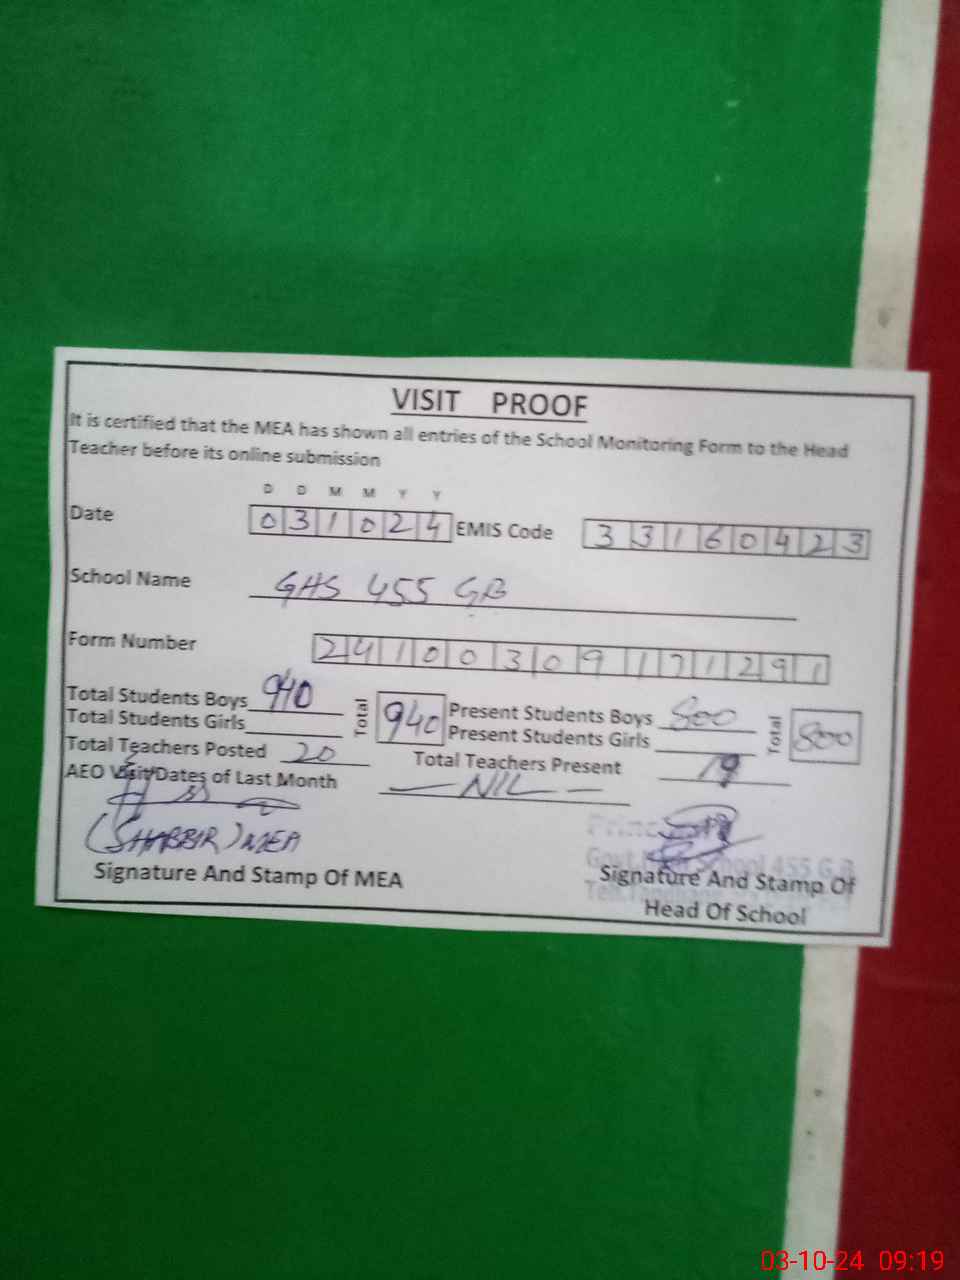 VISIT PROOF
It is certified that the MEA has shown all entries of the School Monitoring Form to the Head
Teacher before its online submission
D D M M Y Y
Date 031024 EMIS Code 33160423
School Name GHS 455 GB
Form Number 24100309171291
Total Students Boys 940 Total 940 Present Students Boys 800 Total 800
Total Students Girls Present Students Girls
Total Teachers Posted 20 Total Teachers Present 19
AEO Visit/Dates of Last Month - NIL -
(SHABBIR) MEA
Signature And Stamp Of MEA
Govt. High School 455 G.B
Signature And Stamp Of
Head Of School
03-10-24 09:19